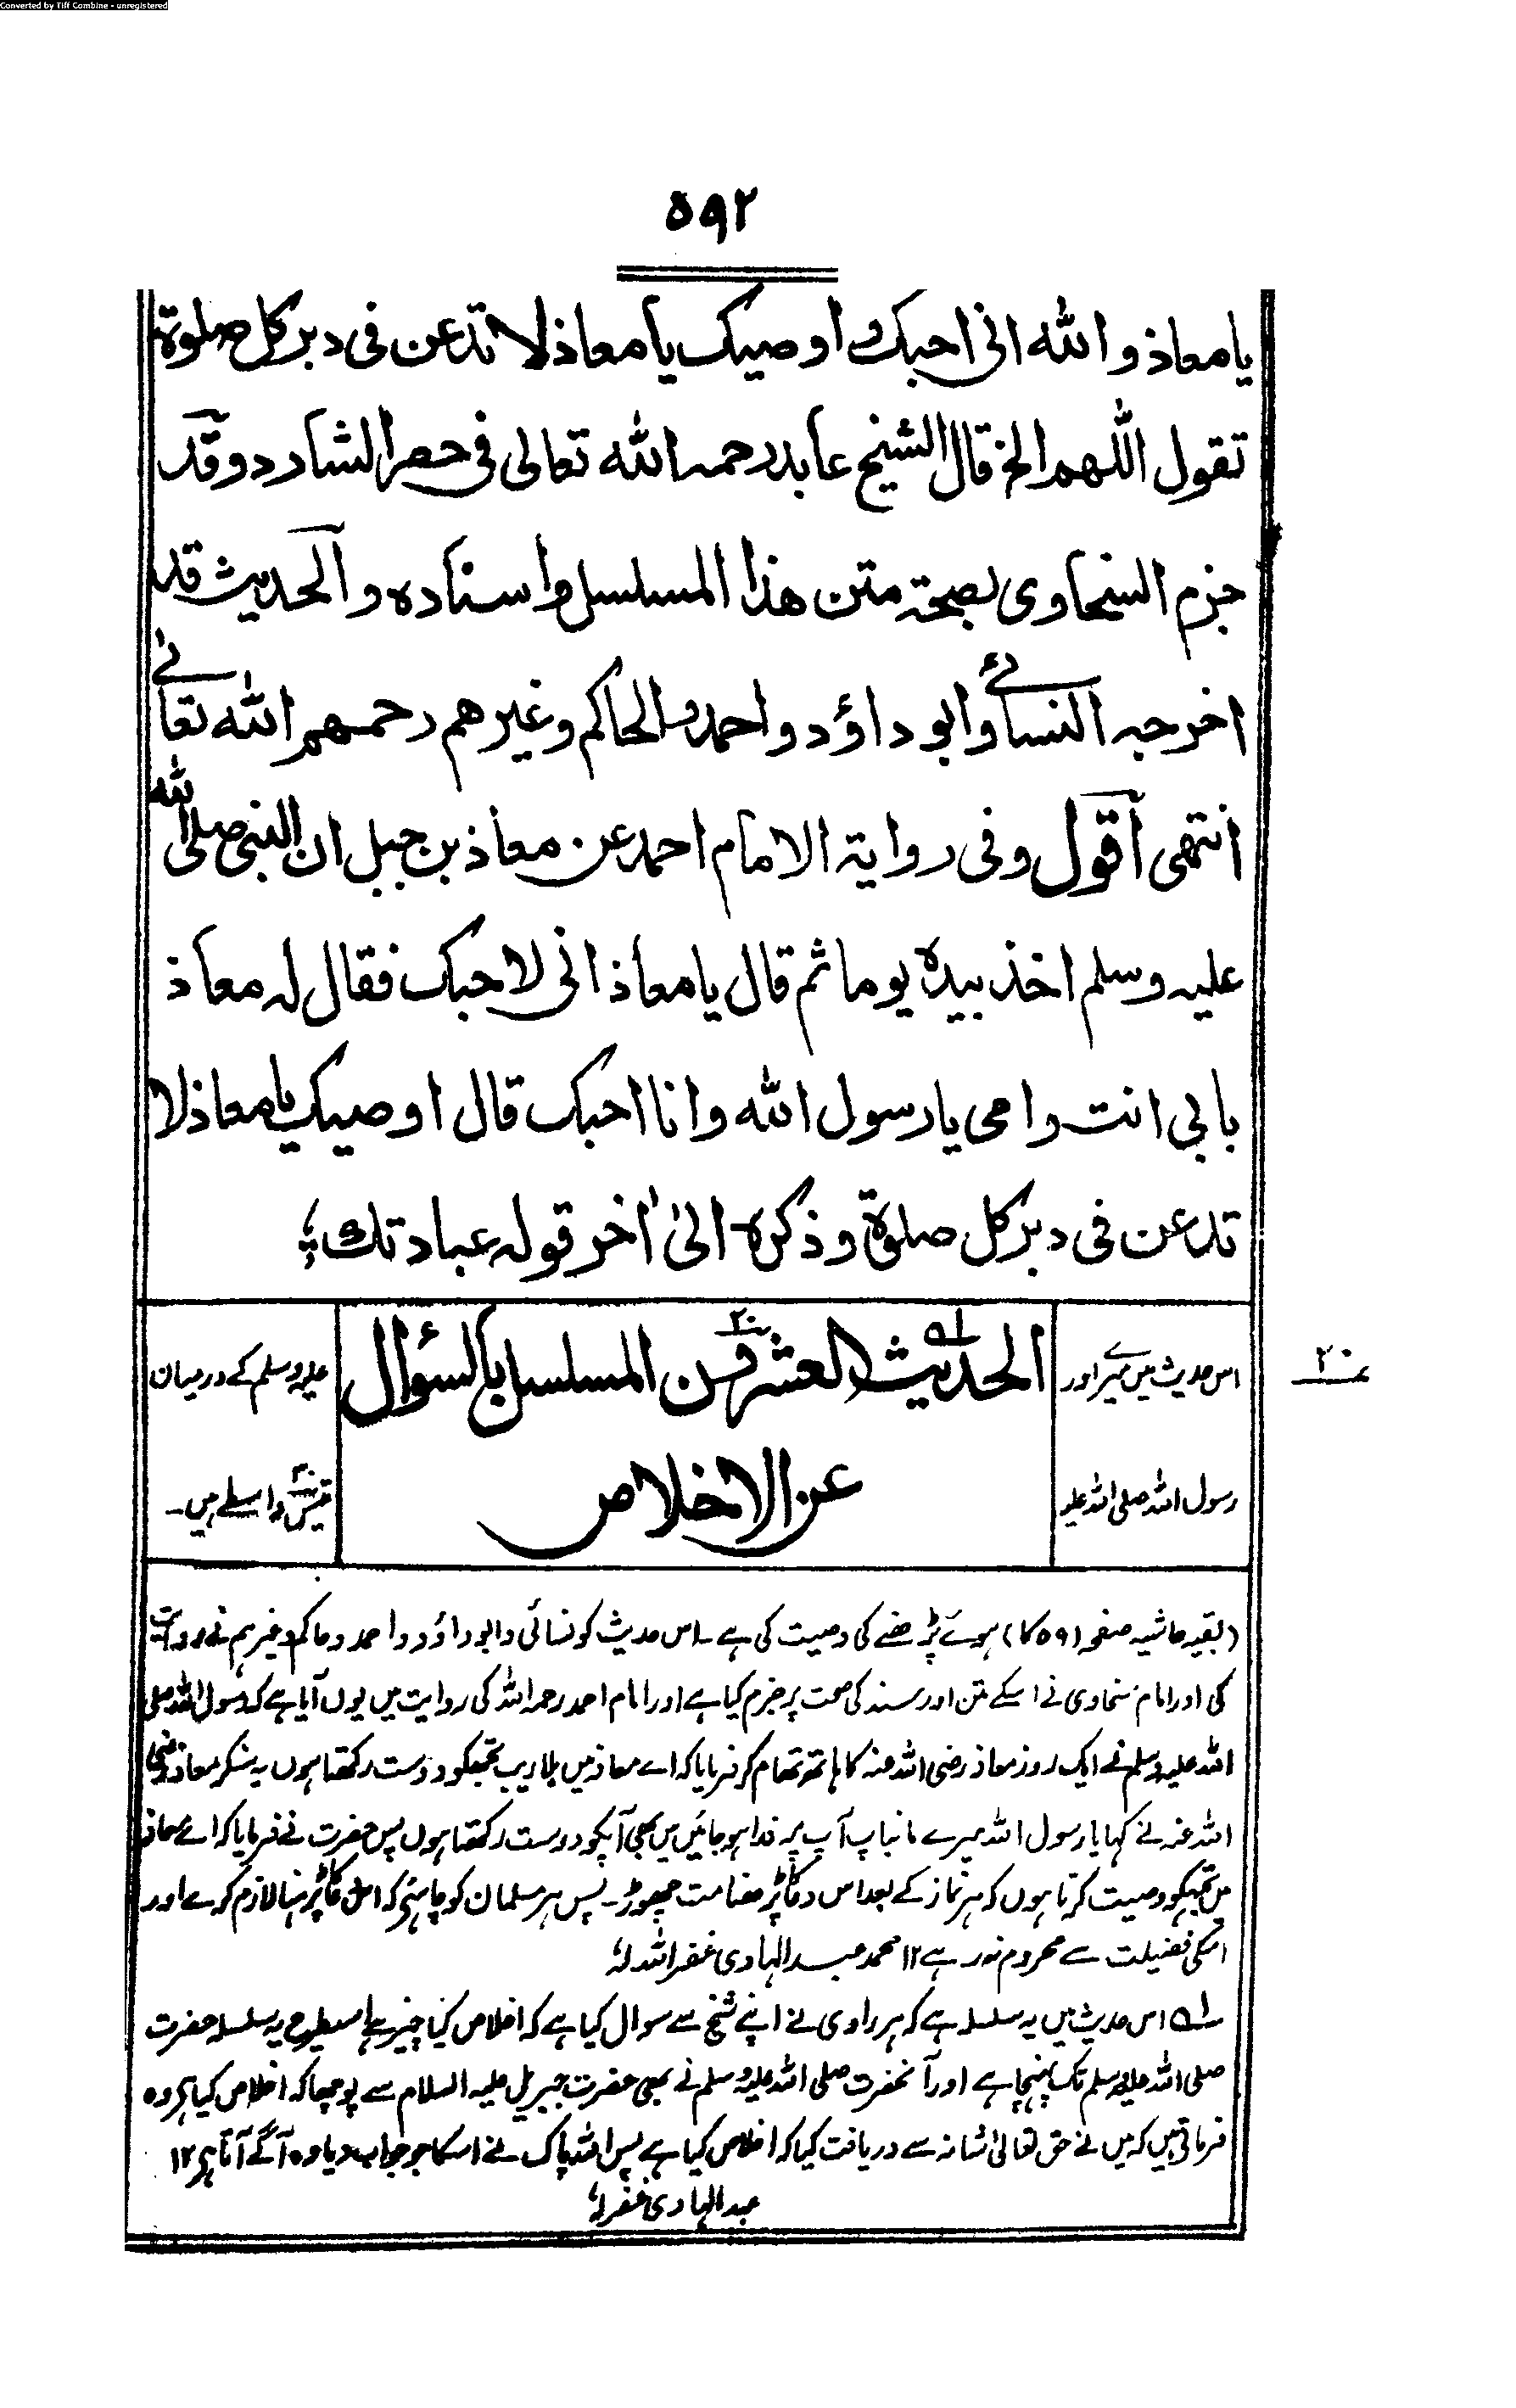 Converted by Tiff Combine - unregistered
٥٩٢
يا معاذ والله انى احبك و اوصيك يا معاذ لا تدعن فى دبر كل صلوة
تقول اللهم الخ قال الشيخ عابد رحمه الله تعالى فى حصر الشارد وقد
جزم السخاوى بصحة متن هذا المسلسل واسناده والحديث قد
اخرجه النسائى وابو داؤد واحمد والحاكم وغيرهم رحمهم الله تعالى
انتهى اقول وفى رواية الامام احمد عن معاذ بن جبل ان النبى صلى الله
عليه وسلم اخذ بيده يوما ثم قال يا معاذ انى لاحبك فقال له معاذ
بابى انت وامى يا رسول الله وانا احبك قال اوصيك يا معاذ لا
تدعن فى دبر كل صلوة وذكره الىٰ اٰخر قوله عبادتك
اس حدیث میں میرے اور
رسول اللہ صلی اللہ علیہ
الحديث العشرون المسلسل بالسؤال
عن الاخلاص
علیہ وسلم کے درمیان
تیس ۳۰ واسطے ہیں۔
۲۰
(بقیہ حاشیہ صفحہ ۵۹۱ کا) ہوے پڑھنے کی وصیت کی ہے۔ اس حدیث کو نسائی وابوداؤد واحمد وحاکم وغیرہم نے روایت
کی اور امام سخاوی نے اسکے متن اور سند کی صحت پر جزم کیا ہے اور امام احمد رحمہ اللہ کی روایت میں یوں آیا ہے کہ رسول اللہ صلی
اللہ علیہ وسلم نے ایک روز معاذ رضی اللہ عنہ کا ہاتھ تھام کر فرمایا کہ اے معاذ میں بلاریب تجھکو دوست رکھتا ہوں یہ سنکر معاذ رضی
اللہ عنہ نے کہا یا رسول اللہ میرے مانباپ آپ پر فدا ہو جائیں میں بھی آپکو دوست رکھتا ہوں پس حضرت نے فرمایا کہ اے معاذ
میں تجھکو وصیت کرتا ہوں کہ ہر نماز کے بعد اس دعا کا پڑھنا مت چھوڑ۔ پس ہر مسلمان کو چاہئے کہ اس دعا کا پڑہنا لازم کرے اور
اسکی فضیلت سے محروم نہ رہے ۱۲ محمد عبد الہادی غفر اللہ لہٗ
۵۱ اس حدیث میں یہ سلسلہ ہے کہ ہر راوی نے اپنے شیخ سے سوال کیا ہے کہ اخلاص کیا چیز ہے اسیطرح یہ سلسلہ حضرت
صلی اللہ علیہ وسلم تک پہنچا ہے اور آنحضرت صلی اللہ علیہ وسلم نے بھی حضرت جبریل علیہ السلام سے پوچھا کہ اخلاص کیا ہے وہ
فرماتے ہیں کہ میں نے حق تعالیٰ شانہ سے دریافت کیا کہ اخلاص کیا ہے پس اللہ پاک نے اسکا جو جواب دیا وہ آگے آتا ہے ۱۲
عبد الہادی غفر لہٗ